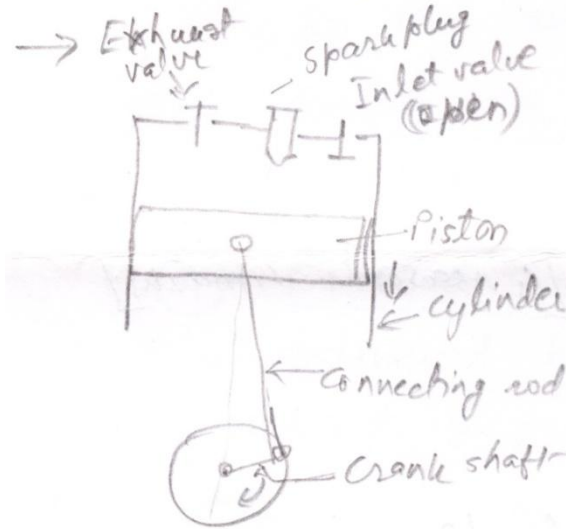 Exhaust
valve
Spark plug
Inlet valve
(open)
Piston
cylinder
connecting rod
Crank shaft